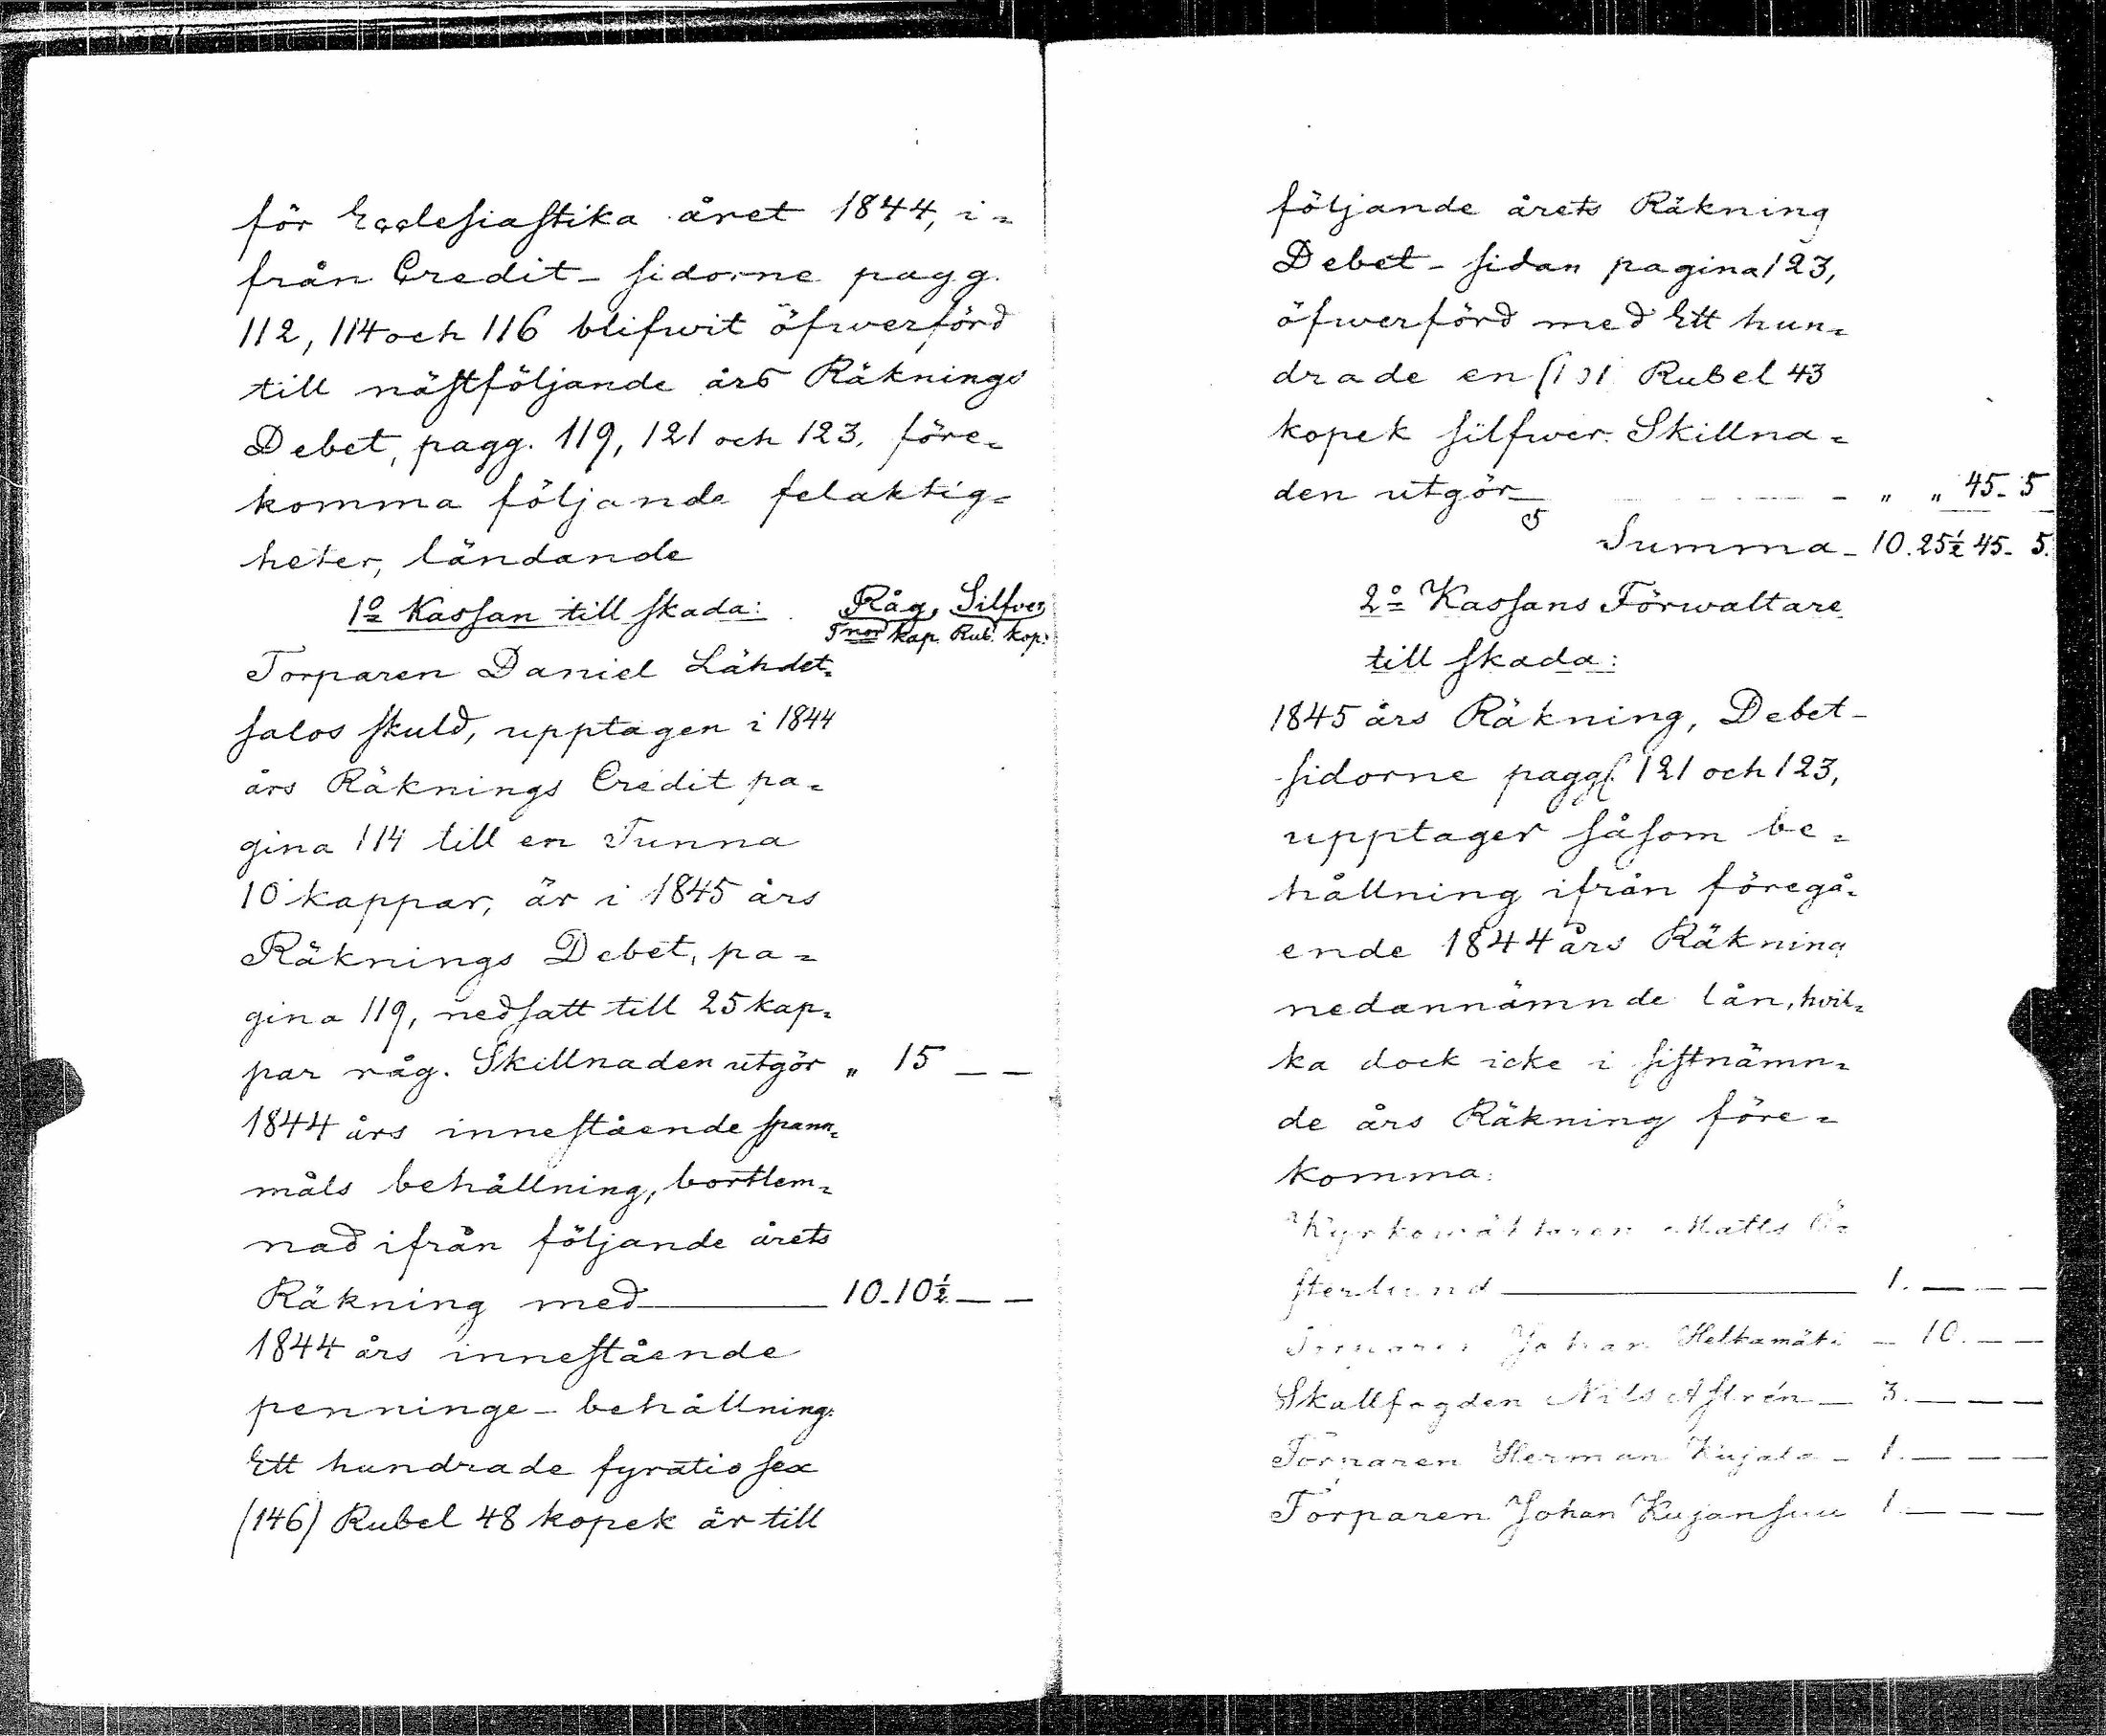 för Ecclesiastika året 1844, i=
från Credit-sidorne pagg.
112, 114 och 116 blifwit öfwerförd
till nästföljande års Räknings
Debet, pagg. 119, 121 och 123. före=
komma följande felaktig=
heter, ländande
1o Kassan till skada: Råg, Silfver
Tnor kap. Rub. kop.
Torparen Daniel Lähdet=
salos skuld, upptagen i 1844
års Räknings Credit pa=
gina 114 till en Tunna
10 kappar, är i 1845 års
Räknings Debet, pa=
gina 119, nedsatt till 25 kap=
par råg. Skillnaden utgör " 15 — —
1844 års innestående spann=
måls behållning, bortlem=
nad ifrån följande årets
Räkning med — 10-10½ — —
1844 års innestående
penninge-behållning:
Ett hundrade fyratio sex
(146) Rubel 48 kopek är till
följande årets Räkning
Debet-sidan pagina 123,
öfwerförd med Ett hun=
drade en (101 Rubel 43
kopek silfwer. Skillna=
den utgör — " " 45-5
Summa - 10.25½ 45-5.
2o Kassans Förwaltare
till skada:
1845 års Räkning, Debet-
sidorne pagg. 121 och 123,
upptager såsom be=
hållning ifrån föregå=
ende 1844 års Räkning
nedannämnde lån, hvil=
ka dock icke i sistnämn=
de års Räkning före=
komma:
Kyrkowäktaren Matts Ö=
sterlund — 1. — — —
Torparen Johan Heltamäki — 10. — —
Skallfogden Nils Astrén — 3. — — —
Torparen Herman Kujala — 1. — — —
Torparen Johan Kujansuu 1. — — —